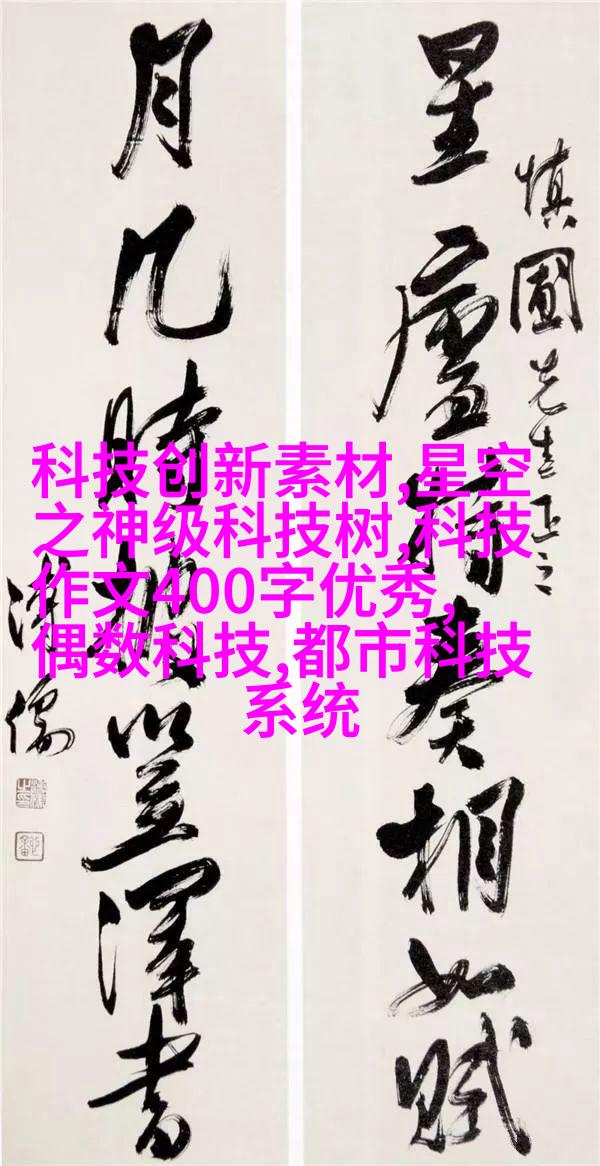 慎圃先生正之
星廬奏相如賦
月几時笠澤書
溥儒
科技创新素材,星空
之神级科技树,科技
作文400字优秀,
偶数科技,都市科技
系统